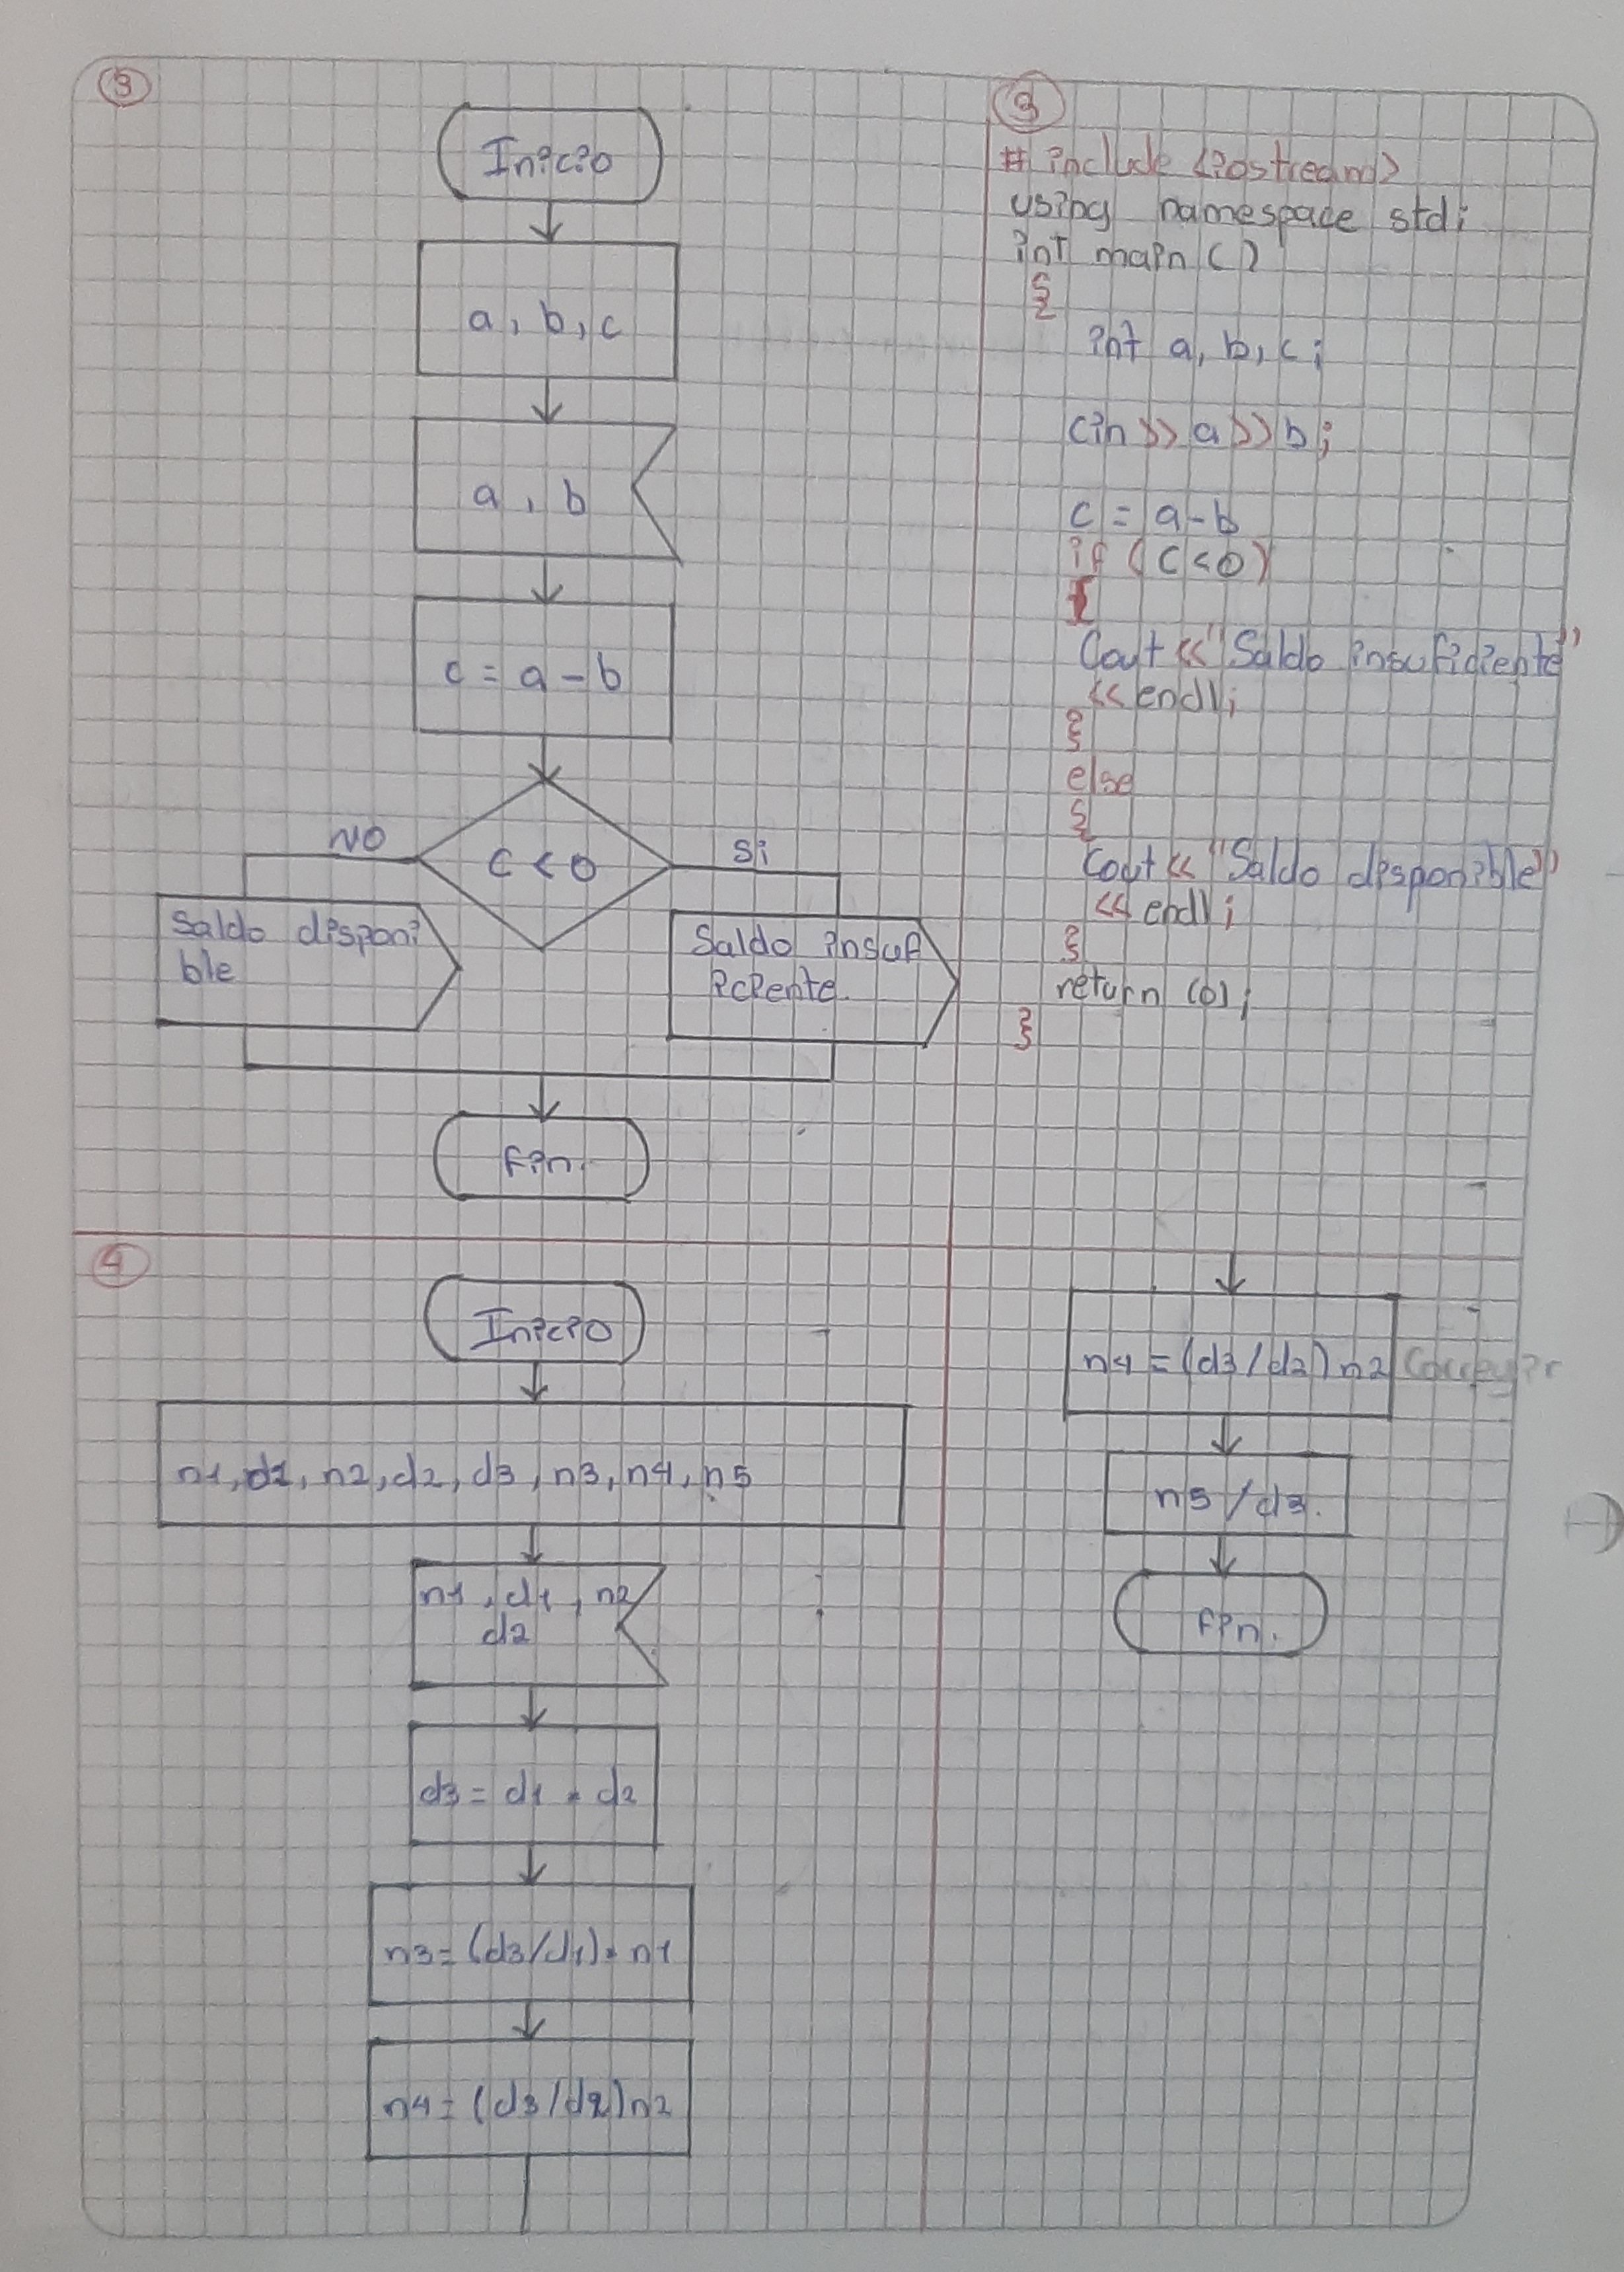 3
Inicio
a, b, c
a, b
c = a - b
C < 0
NO
si
Saldo disponi
ble
Saldo insuf
iciente.
Fin.
3
# include <iostream>
using namespace std;
int main ( )
{
int a, b, c;
cin >> a >> b;
c = a - b
if (c < 0)
{
Cout << "Saldo insuficiente"
<< endl;
}
else
{
Cout << "Saldo disponible"
<< endl;
}
return (0);
}
4
Inicio
n1, d1, n2, d2, d3, n3, n4, n5
n1, d1, n2
d2
d3 = d1 * d2
n3 = (d3/d1) * n1
n4 = (d3/d2) n2
n4 = (d3/d2) n2
n5 / d3.
Fin.